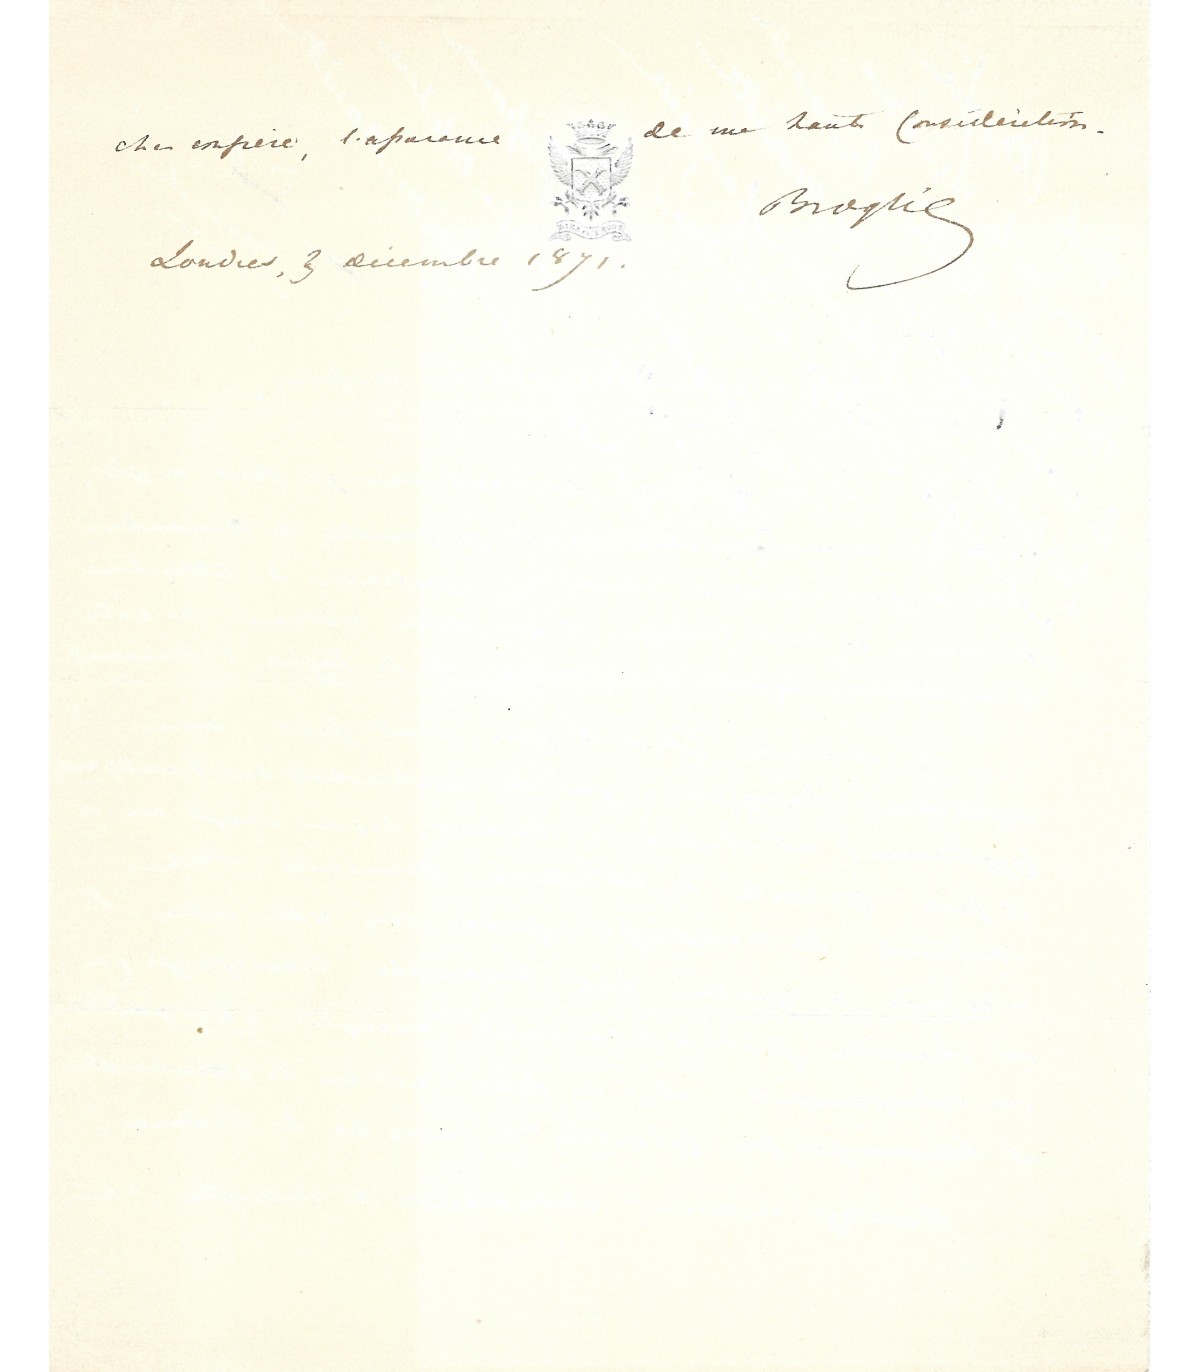 cher confrère, l'assurance de ma haute Considération.
Broglie
Londres, 3 décembre 1871.